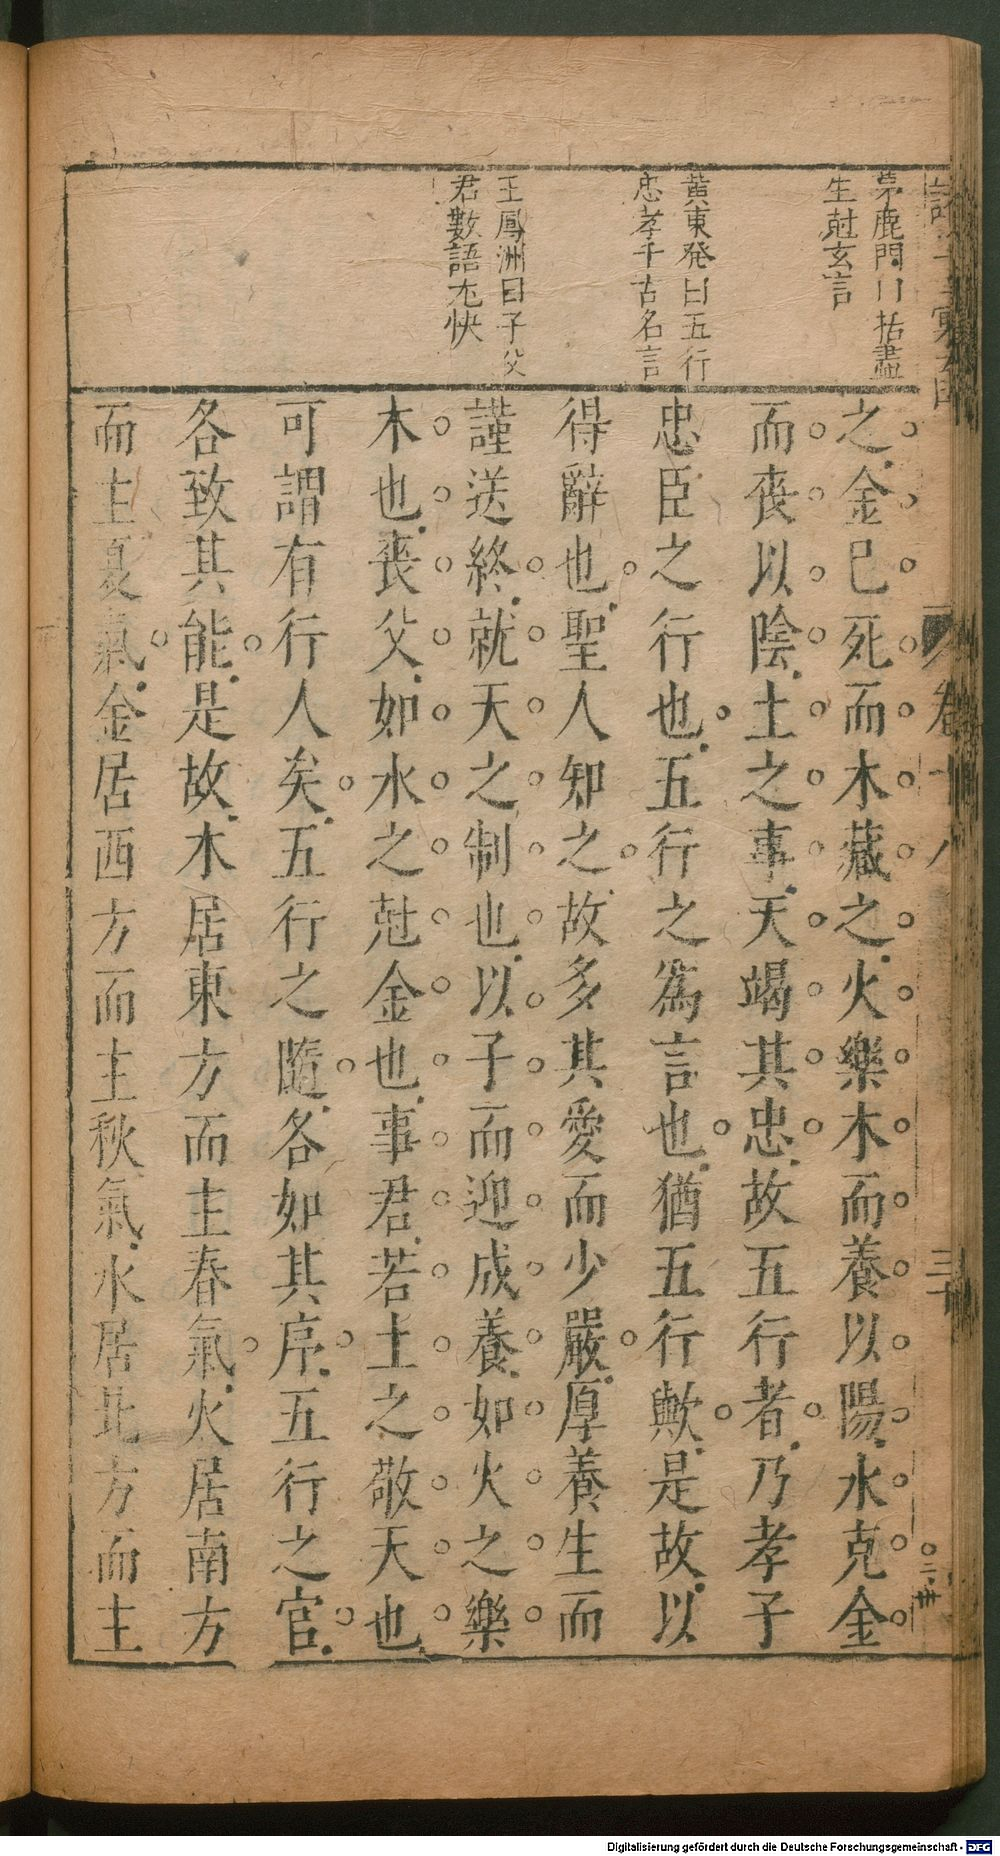 茅鹿門曰拈盡
生尅玄言
黄東発曰五行
忠孝千古名言
王鳳洲曰子父
君數語尤快
之金已死而木藏之火樂木而養以陽水克金
而喪以陰土之事天竭其忠故五行者乃孝子
忠臣之行也五行之為言也猶五行歟是故以
得辭也聖人知之故多其愛而少嚴厚養生而
謹送終就天之制也以子而迎成養如火之樂
木也喪父如水之尅金也事君若土之敬天也
可謂有行人矣五行之隨各如其序五行之官
各致其能是故木居東方而主春氣火居南方
而主夏氣金居西方而主秋氣水居北方而主
卷十八
三十
Digitalisierung gefördert durch die Deutsche Forschungsgemeinschaft - DFG